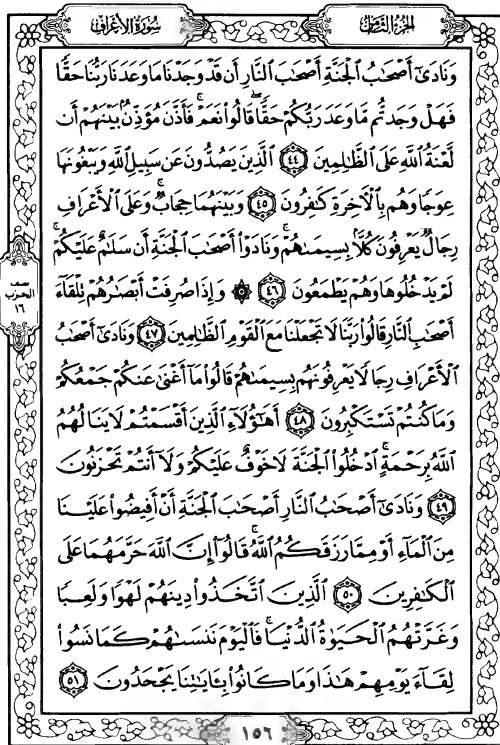 الجزء الثامن
سورة الأعراف
وَنَادَىٰٓ أَصْحَٰبُ ٱلْجَنَّةِ أَصْحَٰبَ ٱلنَّارِ أَن قَدْ وَجَدْنَا مَا وَعَدَنَا رَبُّنَا حَقًّا
فَهَلْ وَجَدتُّم مَّا وَعَدَ رَبُّكُمْ حَقًّا ۖ قَالُوا۟ نَعَمْ ۚ فَأَذَّنَ مُؤَذِّنٌۢ بَيْنَهُمْ أَن
لَّعْنَةُ ٱللَّهِ عَلَى ٱلظَّٰلِمِينَ ٤٤ ٱلَّذِينَ يَصُدُّونَ عَن سَبِيلِ ٱللَّهِ وَيَبْغُونَهَا
عِوَجًا وَهُم بِٱلْـَٔاخِرَةِ كَٰفِرُونَ ٤٥ وَبَيْنَهُمَا حِجَابٌ ۚ وَعَلَى ٱلْأَعْرَافِ
رِجَالٌ يَعْرِفُونَ كُلًّۢا بِسِيمَىٰهُمْ ۚ وَنَادَوْا۟ أَصْحَٰبَ ٱلْجَنَّةِ أَن سَلَٰمٌ عَلَيْكُمْ ۚ
لَمْ يَدْخُلُوهَا وَهُمْ يَطْمَعُونَ ٤٦ ۞ وَإِذَا صُرِفَتْ أَبْصَٰرُهُمْ تِلْقَآءَ
أَصْحَٰبِ ٱلنَّارِ قَالُوا۟ رَبَّنَا لَا تَجْعَلْنَا مَعَ ٱلْقَوْمِ ٱلظَّٰلِمِينَ ٤٧ وَنَادَىٰٓ أَصْحَٰبُ
ٱلْأَعْرَافِ رِجَالًا يَعْرِفُونَهُم بِسِيمَىٰهُمْ قَالُوا۟ مَآ أَغْنَىٰ عَنكُمْ جَمْعُكُمْ
وَمَا كُنتُمْ تَسْتَكْبِرُونَ ٤٨ أَهَٰٓؤُلَآءِ ٱلَّذِينَ أَقْسَمْتُمْ لَا يَنَالُهُمُ
ٱللَّهُ بِرَحْمَةٍ ۚ ٱدْخُلُوا۟ ٱلْجَنَّةَ لَا خَوْفٌ عَلَيْكُمْ وَلَآ أَنتُمْ تَحْزَنُونَ
٤٩ وَنَادَىٰٓ أَصْحَٰبُ ٱلنَّارِ أَصْحَٰبَ ٱلْجَنَّةِ أَنْ أَفِيضُوا۟ عَلَيْنَا
مِنَ ٱلْمَآءِ أَوْ مِمَّا رَزَقَكُمُ ٱللَّهُ ۚ قَالُوٓا۟ إِنَّ ٱللَّهَ حَرَّمَهُمَا عَلَى
ٱلْكَٰفِرِينَ ٥٠ ٱلَّذِينَ ٱتَّخَذُوا۟ دِينَهُمْ لَهْوًا وَلَعِبًا
وَغَرَّتْهُمُ ٱلْحَيَوٰةُ ٱلدُّنْيَا ۚ فَٱلْيَوْمَ نَنسَىٰهُمْ كَمَا نَسُوا۟
لِقَآءَ يَوْمِهِمْ هَٰذَا وَمَا كَانُوا۟ بِـَٔايَٰتِنَا يَجْحَدُونَ ٥١
نصف
الحزب
١٦
١٥٦